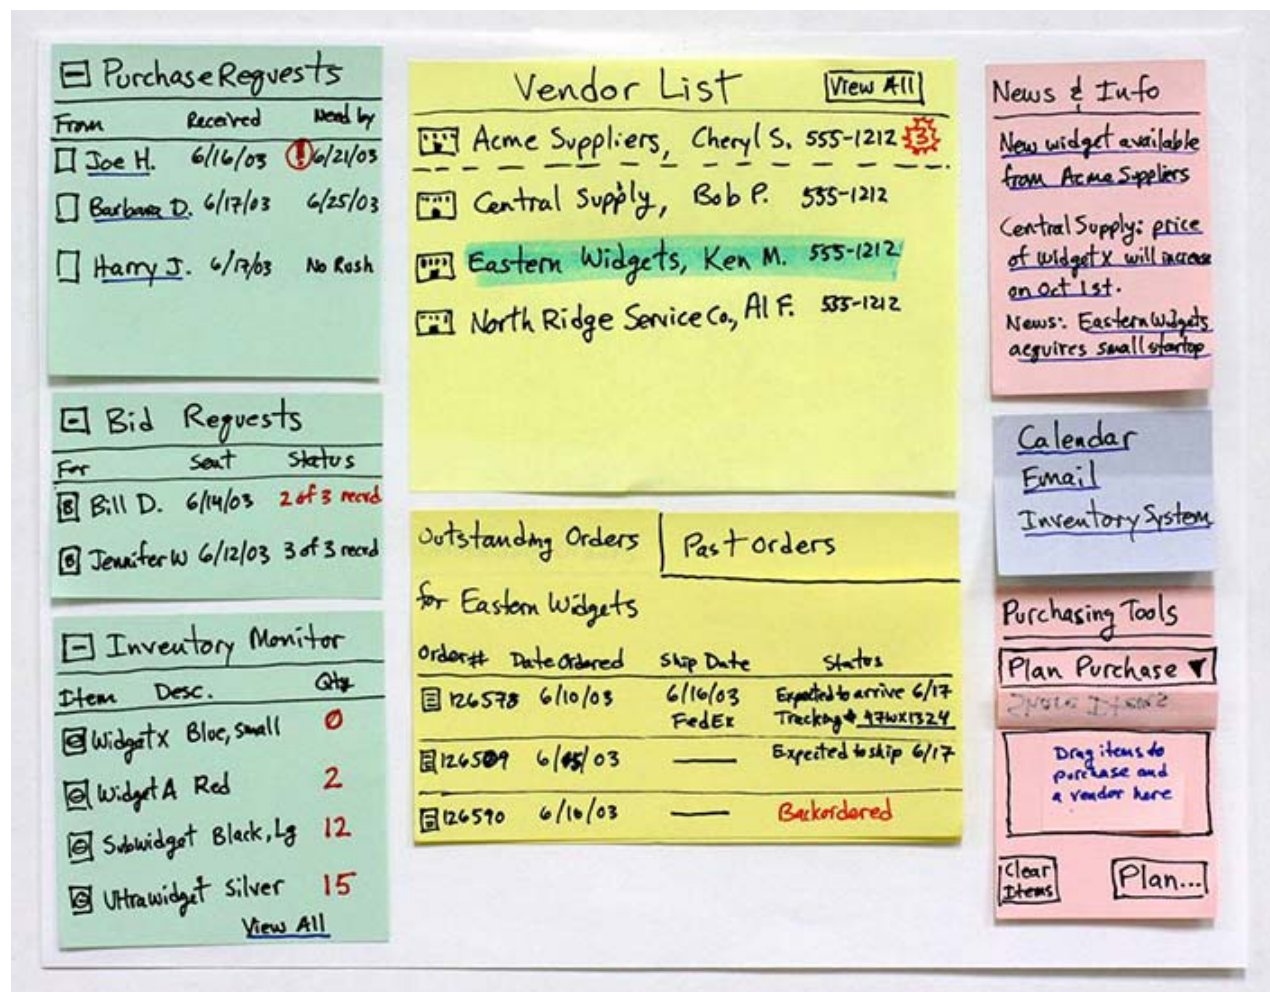 Purchase Requests
From Received Need by
Joe H. 6/16/03 ! 6/21/03
Barbara D. 6/17/03 6/25/03
Harry J. 6/17/03 No Rush
Bid Requests
For Sent Status
B Bill D. 6/14/03 2 of 3 recvd
B Jennifer W 6/12/03 3 of 3 recvd
Inventory Monitor
Item Desc. Qty
Widget X Blue, small 0
Widget A Red 2
Subwidget Black, Lg 12
Ultrawidget Silver 15
View All
Vendor List View All
Acme Suppliers, Cheryl S. 555-1212 3
Central Supply, Bob P. 555-1212
Eastern Widgets, Ken M. 555-1212
North Ridge Service Co., Al F. 555-1212
Outstanding Orders Past orders
for Eastern Widgets
Order# Date Ordered Ship Date Status
126578 6/10/03 6/16/03 Expected to arrive 6/17
FedEx Tracking# 97WX1324
126589 6/15/03 — Expected to ship 6/17
126590 6/16/03 — Backordered
News & Info
New widget available
from Acme Suppliers
Central Supply: price
of widget X will increase
on Oct 1st.
News: Eastern Widgets
acquires small startup
Calendar
Email
Inventory System
Purchasing Tools
Plan Purchase ▼
Drag items to
purchase and
a vendor here
Clear
Items
Plan...